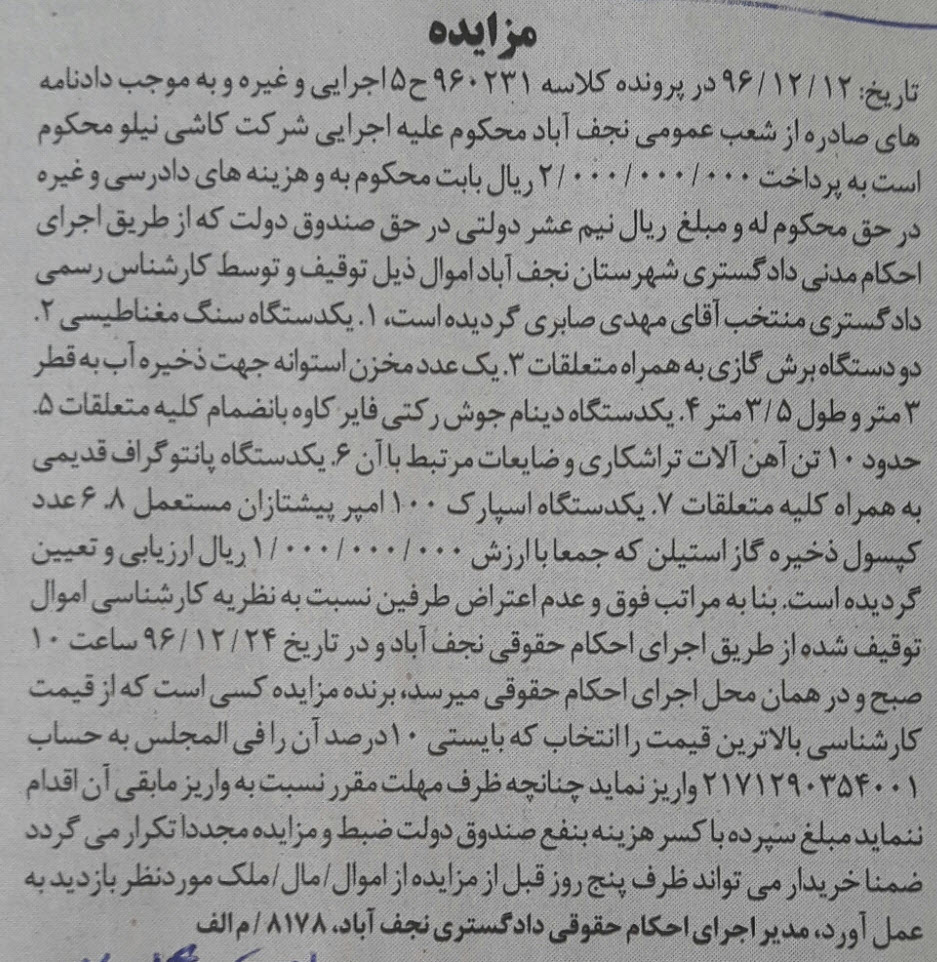 مزایده
تاریخ: ۹۶/۱۲/۱۲ در پرونده کلاسه ۹۶۰۲۳۱ ح۵ اجرایی و غیره و به موجب دادنامه
های صادره از شعب عمومی نجف آباد محکوم علیه اجرایی شرکت کاشی نیلو محکوم
است به پرداخت ۲/۰۰۰/۰۰۰/۰۰۰ ریال بابت محکوم به و هزینه های دادرسی و غیره
در حق محکوم له و مبلغ ریال نیم عشر دولتی در حق صندوق دولت که از طریق اجرای
احکام مدنی دادگستری شهرستان نجف آباد اموال ذیل توقیف و توسط کارشناس رسمی
دادگستری منتخب آقای مهدی صابری گردیده است، ۱. یکدستگاه سنگ مغناطیسی ۲.
دو دستگاه برش گازی به همراه متعلقات ۳. یک عدد مخزن استوانه جهت ذخیره آب به قطر
۳ متر و طول ۳/۵ متر ۴. یکدستگاه دینام جوش رکتی فایر کاوه بانضمام کلیه متعلقات ۵.
حدود ۱۰ تن آهن آلات تراشکاری و ضایعات مرتبط با آن ۶. یکدستگاه پانتوگراف قدیمی
به همراه کلیه متعلقات ۷. یکدستگاه اسپارک ۱۰۰ امپر پیشتازان مستعمل ۸. ۶ عدد
کپسول ذخیره گاز استیلن که جمعا با ارزش ۱/۰۰۰/۰۰۰/۰۰۰ ریال ارزیابی و تعیین
گردیده است. بنا به مراتب فوق و عدم اعتراض طرفین نسبت به نظریه کارشناسی اموال
توقیف شده از طریق اجرای احکام حقوقی نجف آباد و در تاریخ ۹۶/۱۲/۲۴ ساعت ۱۰
صبح و در همان محل اجرای احکام حقوقی میرسد، برنده مزایده کسی است که از قیمت
کارشناسی بالاترین قیمت را انتخاب که بایستی ۱۰ درصد آن را فی المجلس به حساب
۲۱۷۱۲۹۰۳۵۴۰۰۱ واریز نماید چنانچه ظرف مهلت مقرر نسبت به واریز مابقی آن اقدام
ننماید مبلغ سپرده با کسر هزینه بنفع صندوق دولت ضبط و مزایده مجددا تکرار می گردد
ضمنا خریدار می تواند ظرف پنج روز قبل از مزایده از اموال/مال/ملک موردنظر بازدید به
عمل آورد، مدیر اجرای احکام حقوقی دادگستری نجف آباد، ۸۱۷۸/م الف